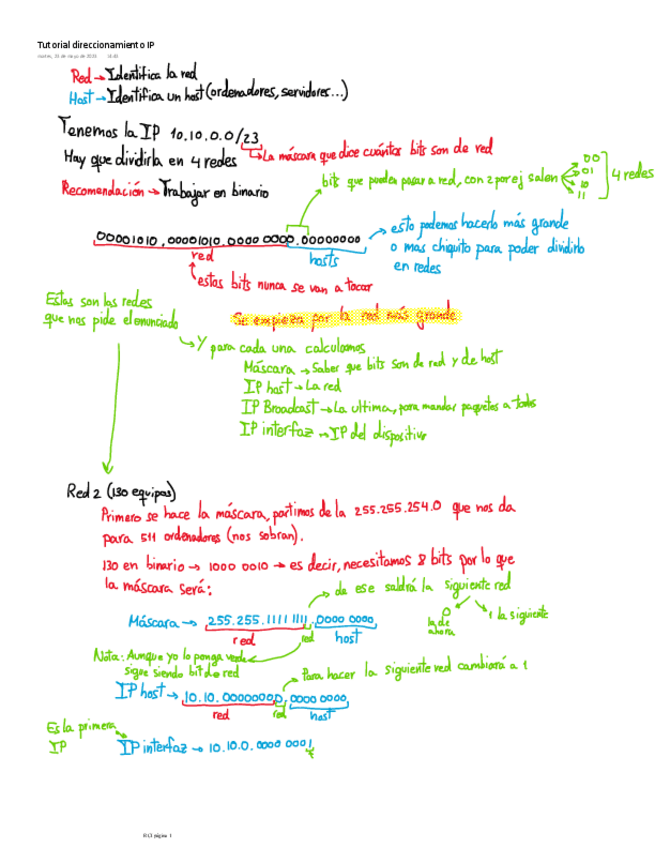 Tutorial direccionamiento IP
Red → Identifica la red
Host → Identifica un host (ordenadores, servidores...)
Tenemos la IP 10.10.0.0/23
La máscara que dice cuántos bits son de red
Hay que dividirla en 4 redes
bits que pueden pasar a red, con 2 por ej salen
00
01
10
11
4 redes
Recomendación → Trabajar en binario
00001010.00001010.0000 0000.00000000
red
hosts
esto podemos hacerlo más grande
o mas chiquito para poder dividirlo
en redes
estos bits nunca se van a tocar
Estas son las redes
que nos pide el enunciado
Se empieza por la red más grande
Y para cada una calculamos
Máscara → Saber que bits son de red y de host
IP host → La red
IP Broadcast → La ultima, para mandar paquetes a todos
IP interfaz → IP del dispositivo
Red 2 (130 equipos)
Primero se hace la máscara, partimos de la 255.255.254.0 que nos da
para 511 ordenadores (nos sobran).
130 en binario → 1000 0010 → es decir, necesitamos 8 bits por lo que
la máscara será:
de ese saldrá la siguiente red
0
la de
ahora
1 la siguiente
Máscara → 255.255.1111 1111.0000 0000
red
red
host
Nota: Aunque yo lo ponga verde
sigue siendo bit de red
Para hacer la siguiente red cambiará a 1
IP host → 10.10.00000000.0000 0000
red
red
host
Es la primera
IP
IP interfaz → 10.10.0.0000 0001